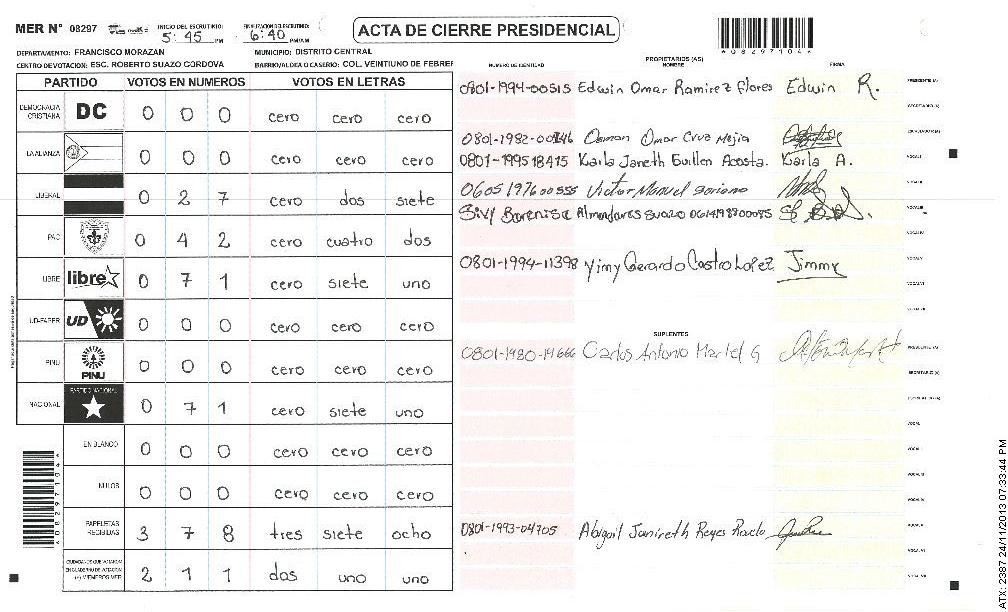 MER N° 08297 INICIO DEL ESCRUTINIO: 5:45 PM FINALIZACION DEL ESCRUTINIO: 6:40 PM/AM
ACTA DE CIERRE PRESIDENCIAL
082971044
DEPARTAMENTO: FRANCISCO MORAZAN MUNICIPIO: DISTRITO CENTRAL
CENTRO DE VOTACION: ESC. ROBERTO SUAZO CORDOVA BARRIO/ALDEA O CASERIO: COL. VEINTIUNO DE FEBRER
PARTIDO VOTOS EN NUMEROS VOTOS EN LETRAS
DEMOCRACIA CRISTIANA DC 0 0 0 cero cero cero
LA ALIANZA 0 0 0 cero cero cero
LIBERAL 0 2 7 cero dos siete
PAC 0 4 2 cero cuatro dos
LIBRE libre 0 7 1 cero siete uno
UD-FAPER UD 0 0 0 cero cero cero
PINU PINU 0 0 0 cero cero cero
NACIONAL PARTIDO NACIONAL 0 7 1 cero siete uno
EN BLANCO 0 0 0 cero cero cero
NULOS 0 0 0 cero cero cero
PAPELETAS RECIBIDAS 3 7 8 tres siete ocho
CIUDADANOS QUE VOTARON EN CUADERNO DE VOTACION (+) MIEMBROS MER 2 1 1 dos uno uno
NUMERO DE IDENTIDAD PROPIETARIOS (AS) NOMBRE FIRMA
0801-1994-00515 Edwin Omar Ramirez flores Edwin R. PRESIDENTE (A)
SECRETARIO (A)
0801-1982-00146 Osman Omar Cruz Mejia ESCRUTADOR (A)
0801-199518415 Karla Janeth Guillen Acosta. Karla A. VOCAL I
0605197600555 Victor Manuel Soriano
Almendares Suazo
0801-1994-11398 Yimy Gerardo Castro Lopez Jimmy
SUPLENTES
0801-1980-14666 Carlos Antonio Martel G PRESIDENTE (A)
SECRETARIO (A)
0801-1993-04705 Abigail Janireth Reyes
ATX: 2387 24/11/2013 07:33:44 PM